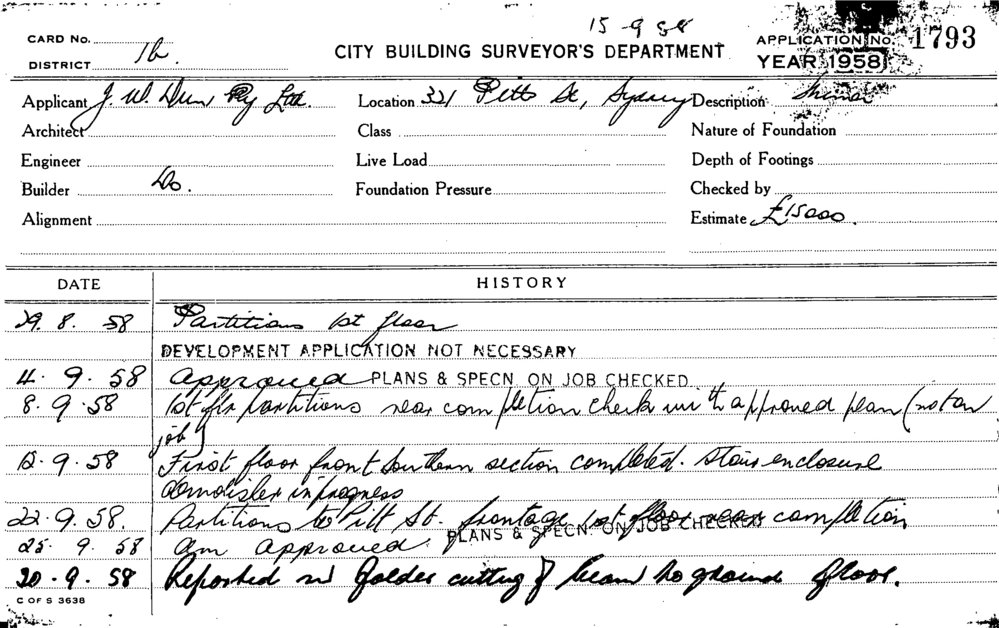 15-9-58
CARD No.
CITY BUILDING SURVEYOR'S DEPARTMENT
APPLICATION No. 1793
DISTRICT 1b.
YEAR 1958
Applicant J. W. Dun Pty Ltd.
Location 321 Pitt St, Sydney
Description
Architect
Class
Nature of Foundation
Engineer
Live Load
Depth of Footings
Builder Do.
Foundation Pressure
Checked by
Alignment
Estimate £15000.
DATE
HISTORY
29. 8. 58 Partitions 1st floor
DEVELOPMENT APPLICATION NOT NECESSARY
4. 9. 58 Approved PLANS & SPECN. ON JOB CHECKED
8. 9. 58 1st flr partitions near completion check with approved plan (not on
job)
12. 9. 58 First floor front Southern section completed. Stair enclosure
in progress
22. 9. 58. Partitions to Pitt St. frontage 1st floor near completion
PLANS & SPECN. ON JOB CHECKED
25. 9. 58 Am approved.
9. 58 Reported cutting of beam to ground floor.
C OF S 3638